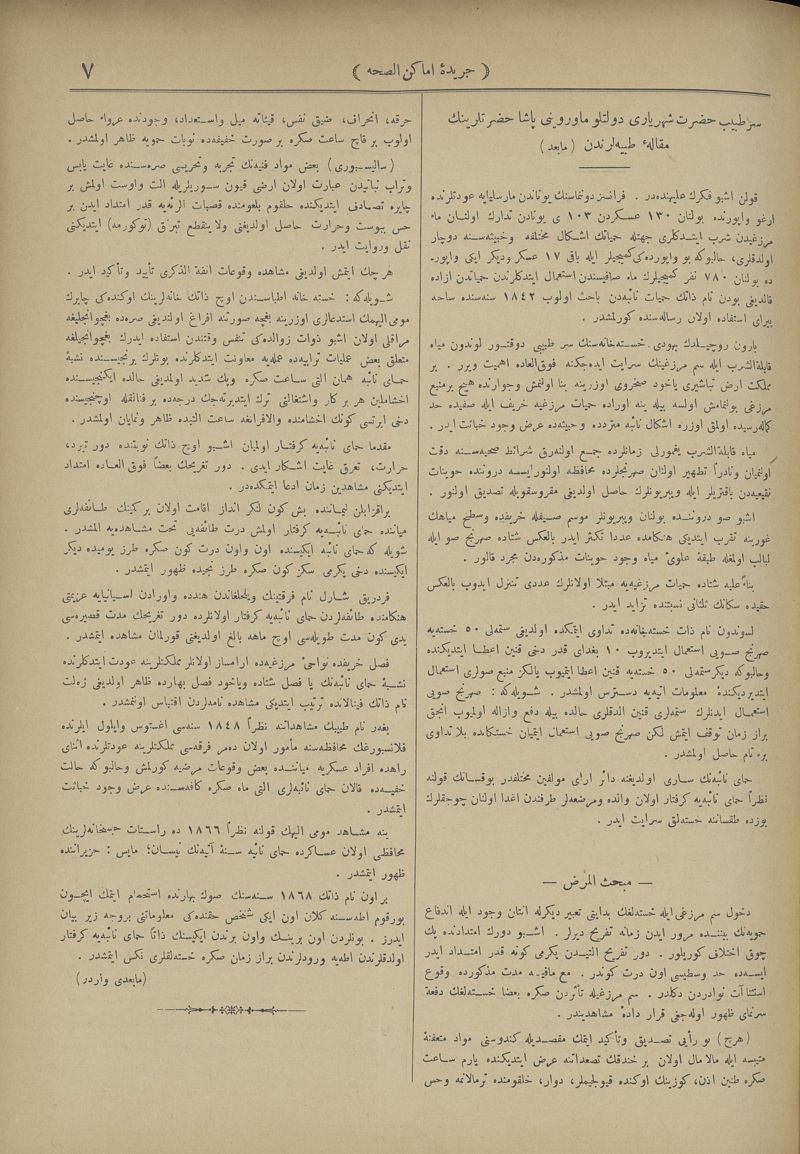 ﴿ جريدهٔ اماكن الصحه ﴾
٧
سر طبيب حضرت شهرياری دولتلو ماوروينی پاشا حضرتلرينك
مقالهٔ طبيه‌لرندن (مابعد)
قولن اشبو فكرك عليهنده‌در . فرانسز دونانماسنك يوناندن مارسليايه عودتلرنده
ارغو واپورنده بولنان ١٣٠ عسكردن ١٠٣ ى يونادن تدارك اولنان ماء
مرزغيدن شرب ايتدكلری جهتله حمياتك اشكال مختلفه وخبيثه‌سنه دوچار
اولدقلری، حالبوكه بو واپورده‌كی كميجيلر ايله باقی ١٧ عسكر وديكر ايكی واپور-
ده بولنان ٧٨٠ نفر كميجيلرك ماء صافيسندن استعمال ايتدكلرندن حمياتدن ازاده
قالديغنی بودن نام ذاتك حميات نائبه‌دن باحث اولوب ١٨٤٢ سنه‌سنده ساحه
پيرای استفاده اولان رساله‌سنده كورلمشدر .
بارون روچيلدك يهودی خسته‌خانه‌سنك سر طبيبی دوقتور لوندون مياه
قابلة الشرب ايله سم مرزغينك سرايت ايده‌جكنه فوق‌العاده اهميت ويرر . بر
مملكت ارض تباشيری ياخود صخروی اوزرينه بنا اولنمش وجوارنده هيچ بر منبع
مرزغی بولنمامش اولسه بيله ينه اوراده حميات مرزغيه خريف ايله صفيده حد
كماله رسيده اولمق اوزره اشكال نائبه متردده وخبيثه‌ده عرض وجود خباثت ايدر .
مياه قابلة الشرب يغمورلی زمانلرده جمع اولنه‌رق شرائط صحيه‌سنه دقت
اولنميان ونادراً تطهير اولنان صهرنجلرده محافظه اولنورايسه دروننده حوينات
نقيعيه‌دن باقتريلر ايله ويبريونلرك حاصل اولديغنی مقروسقوپله تصديق اولنور .
اشبو صو دروننده بولنان ويبريونلر موسم صيفله خريفده وسطحی مياهك
غورينه تقرب ايتديكی هنكامده عددا تكثر ايدر بالعكس شتاده صهرنج صو ايله
لبالب اولمغله طبقهٔ علوی مياه وجود حوينات مذكوره‌دن مجرد قالور .
بناءً عليه شتاده حميات مرزغيه‌يه مبتلا اولانلرك عددی تنزل ايدوب بالعكس
حقيده سكانك ثلثانی نسبتنده تزايد ايدر .
لوندون نام ذات خسته‌خانه‌ده تداوی ايتمكده اولديغی ستملی ٥٠ خسته‌يه
صهرنج صويی استعمال ايتديروب ١٠ بغدای قدر دخی قنين اعطا ايتديكنده
وحالبوكه ديكر ستملی ٥٠ خسته‌يه قنين اعطا ايتميوب يالكز منبع صولری استعمال
ايتديرديكندن معلومات اتيه‌يه دسترس اولمشدر . شويله‌كه : صهرنج صويی
استعمال ايدنلرك ستملری قنين الدقلری حالده بيله دفع وازاله اولميوب انجق
براز زمان توقف ايتمش لكن صهرنج صويی استعمال ايتميان خستكانده بلا تداوی
برء تام حاصل اولمشدر .
حمای نائبه‌نك ساری اولديغنه دائر ارای مولفين مختلفدر بوقسانك قولنه
نظراً حمای نائبه‌يه كرفتار اولان والده ومرضعه‌لر طرفندن اغدا اولنان چوجقلرك
يوزده طقساننه خسته‌لق سرايت ايدر .
— مبحث المرض —
دخول سم مرزغی ايله خسته‌لغك بدايتی تعبير ديكرله انتان وجود ايله اندفاع
حمويه‌نك بيننده مرور ايدن زمانه تفريح ديرلر . اشبو دورك امتدادنده پك
چوق اختلافی كوريلور . دور تفريح التيدن يكرمی كونه قدر امتداد ايدر
ايسه‌ده حد وسطيسی اون درت كوندر . مع مافيه مدت مذكورده وقوع
استثناآت نوادردن دكلدر . سم مرزغيله تأثردن صكره بعضا خسته‌لغك دفعةً
سرنمای ظهور اوله‌جغی قرار داده مشاهديندر .
(هرچ) بو رأيی تصديق وتأكيد ايتمك مقصديله كندوسنی مواد متعفنهٔ
متيبسه ايله مالامال اولان بر خندقك تصعداتنه عرض ايتديكنده يارم ساعت
صكره طنين اذن، كوزينك اوكنده قيولجيملر، دوار، حلقومنده ترمالانمه وحس
حرقه، انحراف، ضيق نفس، قيئانه ميل واستعداد، وجودنده عرواء حاصل
اولوب بر قاچ ساعت صكره بر صورت خفيفه‌ده نوبات حمويه ظاهر اولمشدر .
(ساليسبوری) بعض مواد فنيه‌نك تجربه وتحريسی صره‌سنده غايت يابس
وتراب نباتيدن عبارت اولان ارضی قيون سوريلريله الت واوست اولمش بر
چايره تصادفی ايتديكنده حلقوم بلعومنده قصبات الرئيه‌يه قدر امتداد ايدن بر
حس يبوست وحرارت حاصل اولديغنی ولاينقطع تبزق (توكورمه) ايتديكنی
نقل وروايت ايدر .
هرچك ايتمش اولديغی مشاهده وقوعات انفة الذكری تأييد وتأكيد ايدر .
شويله‌كه : خسته خانه اطباسندن اوچ ذاتك خانه‌لرينك اوكنده‌كی چايرك
مومی اليهمك استدعالری اوزرينه باغچه صورتنه افراغ اولنديغی صره‌ده باغچوانجيلغه
مراقلی اولان اشبو ذوات زوالده‌كی تنفس وقتندن استفاده ايدرك باغچوانجيلغه
متعلق بعض عمليات ترابيه‌ده عمله‌يه معاونت ايتدكلرنده بونلرك برنجيسنده نشبهٔ
حمای نائبه همان التی ساعت صكره وپك شديد اولمديغی حالده ايكنجيسنده
اخشامليين هر بر كار واشتغالنی ترك ايتديرته‌جك درجه‌ده بر فنالقله اوچنجيسنده
دخی ايرتسی كونك اخشامنده والافرانغه ساعت التيده ظاهر ونمايان اولمشدر .
مقدما حمای نائبه‌يه كرفتار اولميان اشبو اوچ ذاتك نوبتنده دور تبرد،
حرارت، تعرق غايت اشكار ايدی . دور تفريحك بعضاً فوق العاده امتداد
ايتديكنی مشاهدين زمان ادعا ايتمكده‌در .
براقزابلن ليماننده بش كون لنكر انداز اقامت اولان بر كمينك طائفه‌لری
مياننده حمای نائبه‌يه كرفتار اولمش درت طائفه‌يی تحت مشاهده‌يه المشدر .
شويله كه حمای نائبه ايكيسنده اون واون درت كون صكره طرز يوميده ديكر
ايكيسنده دخی يكرمی سكز كون صكره طرز نجيده ظهور ايتمشدر .
فردريق شارل نام فرقتينك ويلجلغاندن هنده واورادن اسپانيايه عزيمتی
هنكامنده طائفه‌لردن حمای نائبه‌يه كرفتار اولانلرده دور تفريحك مدت قصيره‌سی
يدی كون مدت طويله‌سی اوچ ماهه بالغ اولديغنی قورلمان مشاهده ايتمشدر .
فصل خريفده نواحیٔ مرزغيه‌ده ارامساز اولانلر مملكتلرينه عودت ايتدكلرنده
نشبهٔ حمای نائبه‌نك يا فصل شتاده وياخود فصل بهارده ظاهر اولديغی زملت
نام ذاتك فينلانده ترتيب ايتديكی مشاهده نامه‌لردن اقتباس اولنمشدر .
بغدر نام طبيبك مشاهداتنه نظراً ١٨٤٨ سنه‌سی اغستوس وايلول ايلرنده
فلانسبورغك محافظه‌سنه مأمور اولان دمر فرقه‌سی مملكتلرينه عودتلرنده اثنای
راهده افراد عسكريه مياننده بعض وقوعات مرضيه كورلمش وحالبوكه حالت
خفيه‌ده قالان حمای نائبه‌لری التی ماه صكره كافه‌سنده عرض وجود خباثت
ايتمشدر .
ينه مشاهد مومی اليهك قولنه نظراً ١٨٦٦ ده راستات حبسخانه‌لرينك
محافظی اولان عساكرده حمای نائبه سنهٔ آتيه‌نك نيسان؛ مايس : حزيراننده
ظهور ايتمشدر .
براون نام ذاتك ١٨٦٨ سنه‌سنك صوك بهارنده استحمام ايتمك ايچون
بورقوم اطه‌سنه كلان اون ايكی شخص حقنده‌كی معلوماتنی بروجه زير بيان
ايدرز . بونلردن اون برينك واون برندن ايكيسنك ذاتاً حمای نائبه‌يه كرفتار
اولدقلرندن اطه‌يه ورودلرندن براز زمان صكره خسته‌لقلری نكس ايتمشدر .
(مابعدی واردر)